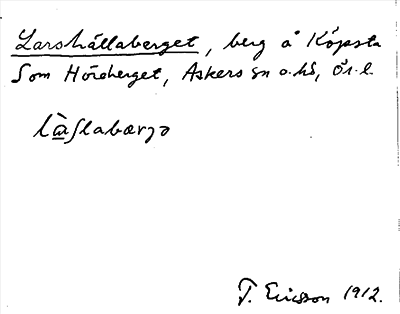 Larshällaberget, berg å Köpsta
Som Höreberget, Askers sn o. hd, Ör. l.
làslabærjə
T. Ericsson 1912.